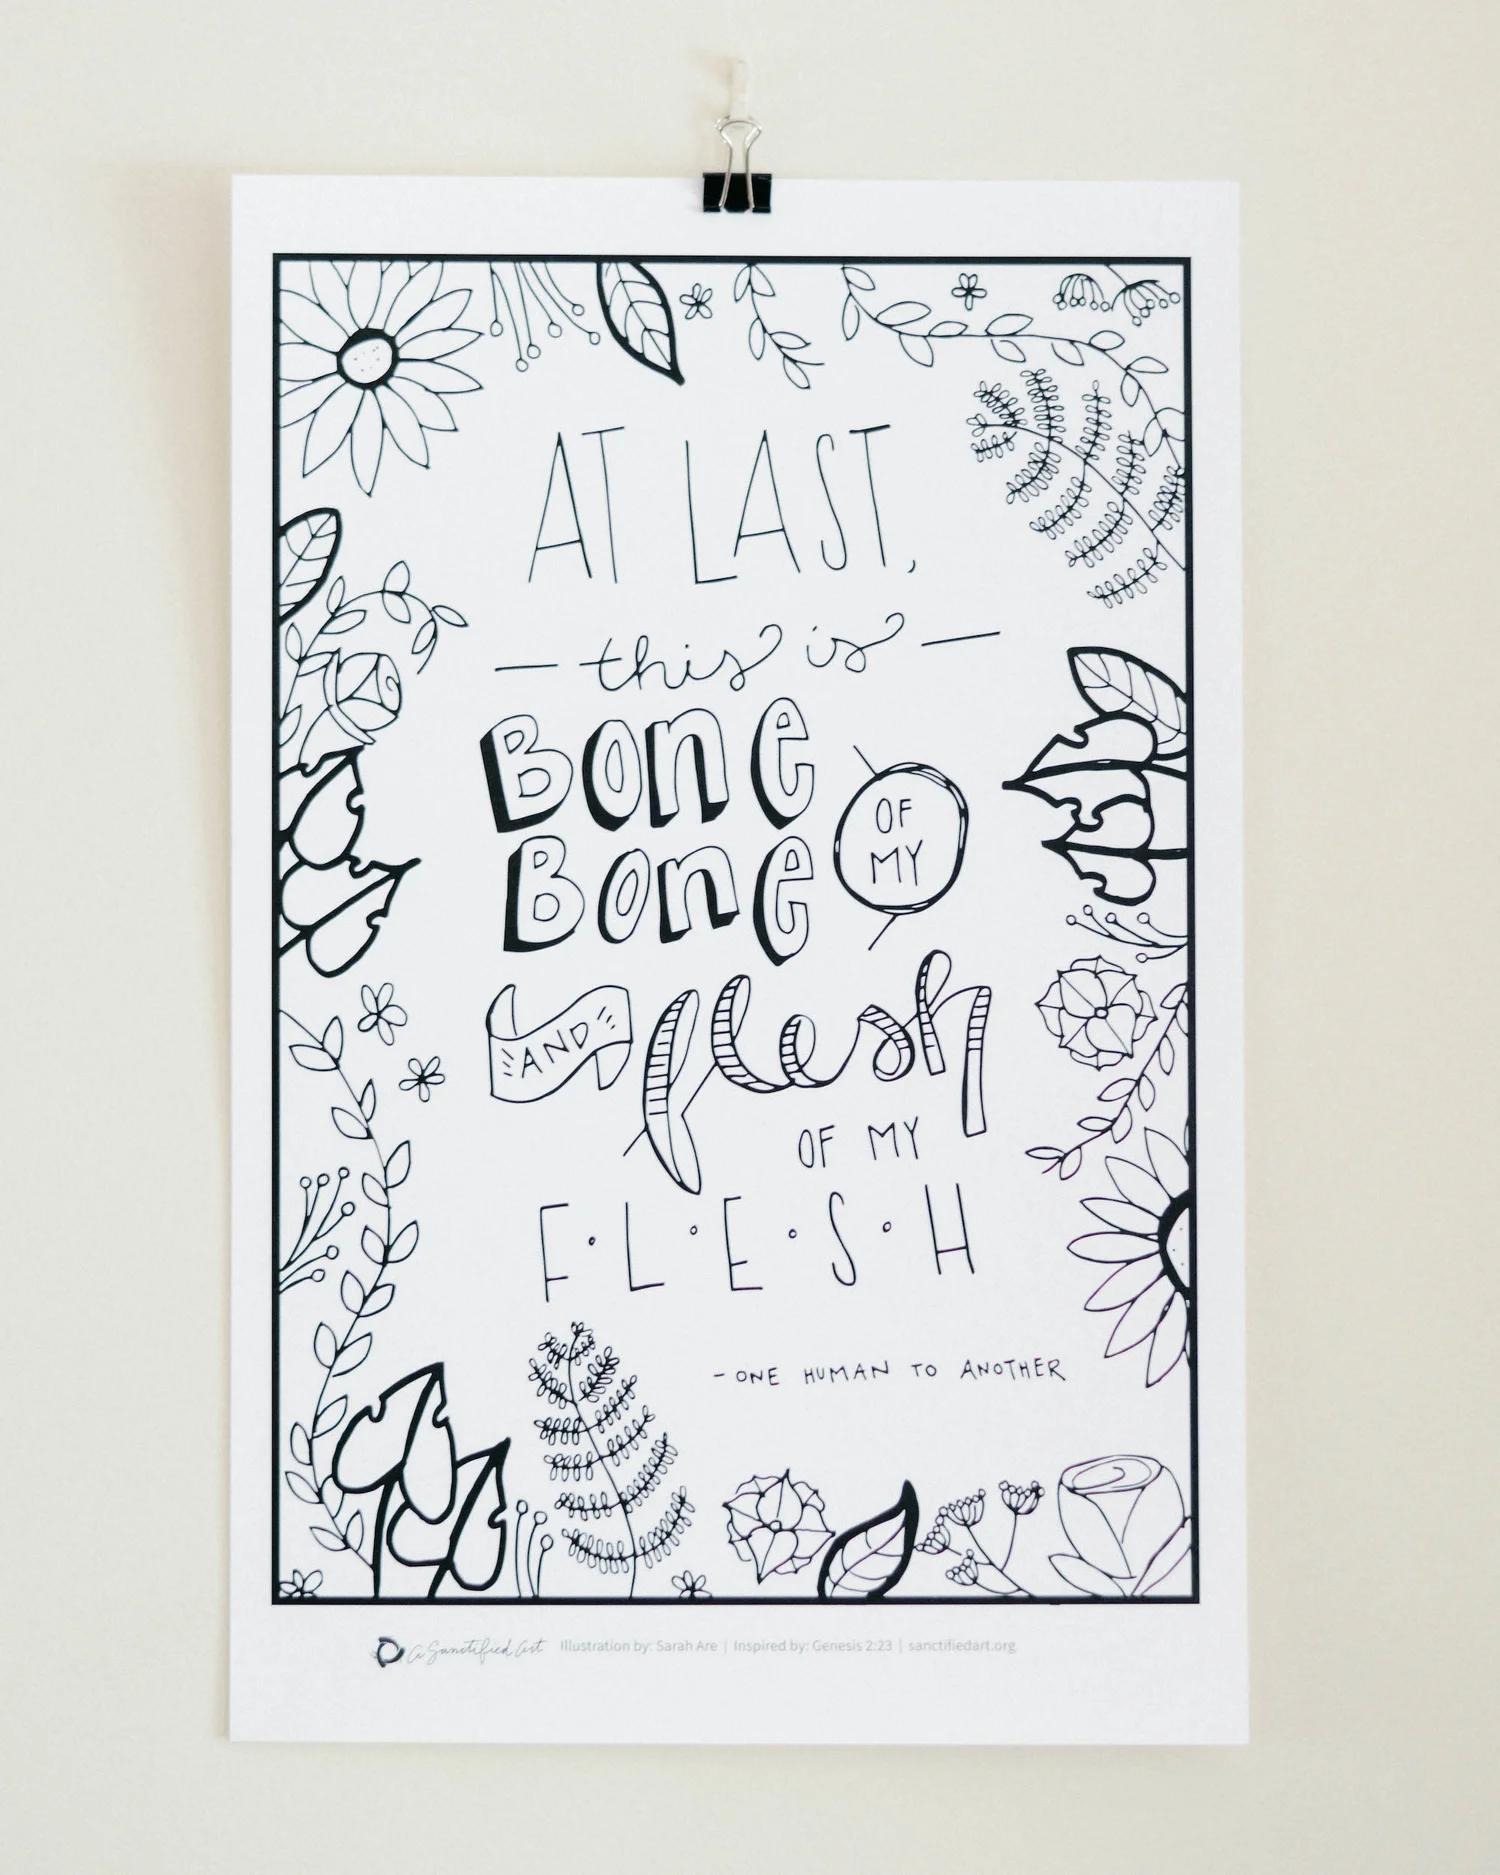 AT LAST,
— this is —
Bone
OF MY
Bone
AND flesh
OF MY
F•L•E•S•H
- ONE HUMAN TO ANOTHER
a Sanctified Art Illustration by: Sarah Are | Inspired by: Genesis 2:23 | sanctifiedart.org